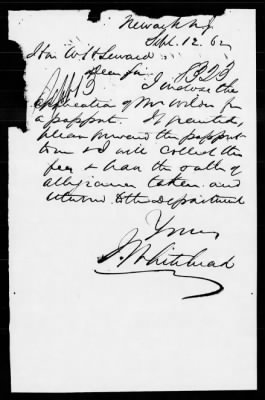 Newark N.J.
Sept. 12. 62
Hon W. H. Seward
Dear Sir
8323
I inclose the
application of Mr Wilson for
a passport. If granted,
please forward the passport
to me & I will collect the
fee & have the oath of
allegiance taken and
returned to the Department
Yours,
J. Whitehead